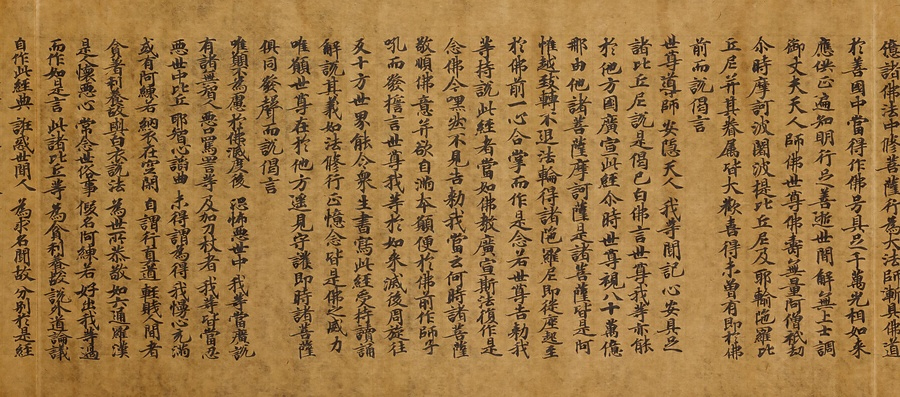 億諸佛法中修菩薩行為大法師漸具佛道
於善國中當得作佛号具足千萬光相如來
應供正遍知明行足善逝世間解無上士調
御丈夫天人師佛世尊佛壽無量阿僧祇劫
尒時摩訶波闍波提比丘尼及耶輸陁羅比
丘尼并其眷属皆大歡喜得未曾有即於佛
前而說偈言
世尊導師 安隱天人 我等聞記 心安具足
諸比丘尼說是偈已白佛言世尊我等亦能
於他方國廣宣此經尒時世尊視八十萬億
那由他諸菩薩摩訶薩是諸菩薩皆是阿
惟越致轉不退法輪得諸陁羅尼即從座起至
於佛前一心合掌而作是念若世尊告勑我
等持說此經者當如佛教廣宣斯法復作是
念佛今嘿然不見告勑我當云何時諸菩薩
敬順佛意并欲自滿本願便於佛前作師子
吼而發擔言世尊我等於如來滅後周旋往
反十方世界能令衆生書寫此經受持讀誦
解說其義如法修行正憶念皆是佛之威力
唯願世尊在於他方遙見守護即時諸菩薩
俱同發聲而說偈言
唯願不為慮 於佛滅度後 恐怖惡世中 我等當廣說
有諸無智人 惡口罵詈等 及加刀杖者 我等皆當忍
惡世中比丘 耶智心諂曲 未得謂為得 我慢心充滿
或有阿練若 納衣在空閑 自謂行真道 輕賤人間者
貪著利養故 與白衣說法 為世所恭敬 如六通羅漢
是人懷惡心 常念世俗事 假名阿練若 好出我等過
而作如是言 此諸比丘等 為貪利養故 說外道論議
自作此經典 誑惑世間人 為求名聞故 分別於是經